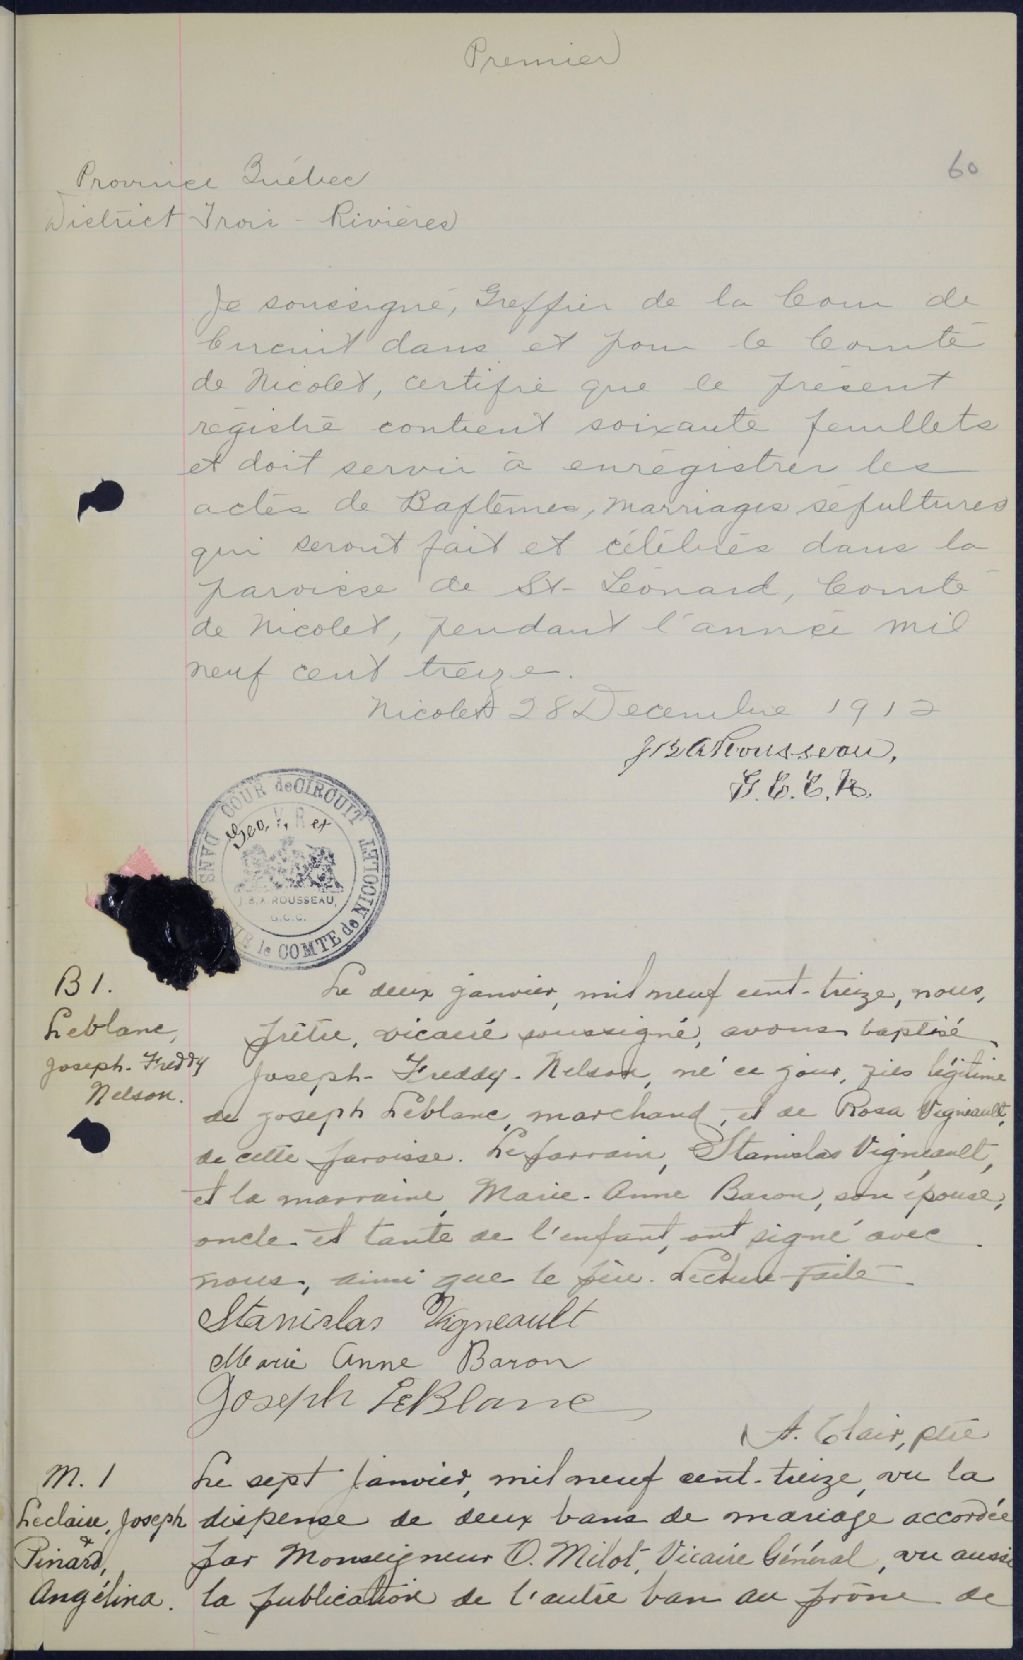 Premier
60
Province Québec
District Trois-Rivières
Je soussigné, Greffier de la Cour de
Circuit dans et pour le Comté
de Nicolet, certifie que le présent
régistre contient soixante feuillets
et doit servir à enrégistrer les
actes de Baptêmes, Marriages sépultures
qui seront fait et célébrés dans la
paroisse de St-Léonard, Comté
de Nicolet, pendant l'année mil
neuf cent treize.
Nicolet 28 Decembre 1912
J B A Rousseau,
G.C.C.N.
COUR de CIRCUIT
DANS
Geo. V, R et
J.B.A. ROUSSEAU,
G.C.C.
le COMTE de NICOLET
B 1.
Leblanc,
Joseph-Freddy
Nelson.
Le deux janvier, mil neuf cent-treize, nous,
prêtre, vicaire soussigné, avons baptisé
Joseph-Freddy-Nelson, né ce jour, fils légitime
de Joseph Leblanc, marchand, et de Rosa Vigneault,
de cette paroisse. Le parrain, Stanislas Vigneault,
et la marraine, Marie-Anne Baron, son épouse,
oncle et tante de l'enfant, ont signé avec
nous, ainsi que le père. Lecture faite
Stanislas Vigneault
Marie Anne Baron
Joseph LeBlanc
A. Clair, ptre
M. 1
Leclair, Joseph
&
Pinard,
Angélina.
Le sept Janvier, mil neuf cent-treize, vu la
dispense de deux bans de mariage accordée
par Monseigneur O. Milot, Vicaire Général, vu aussi
la publication de l'autre ban au prône de